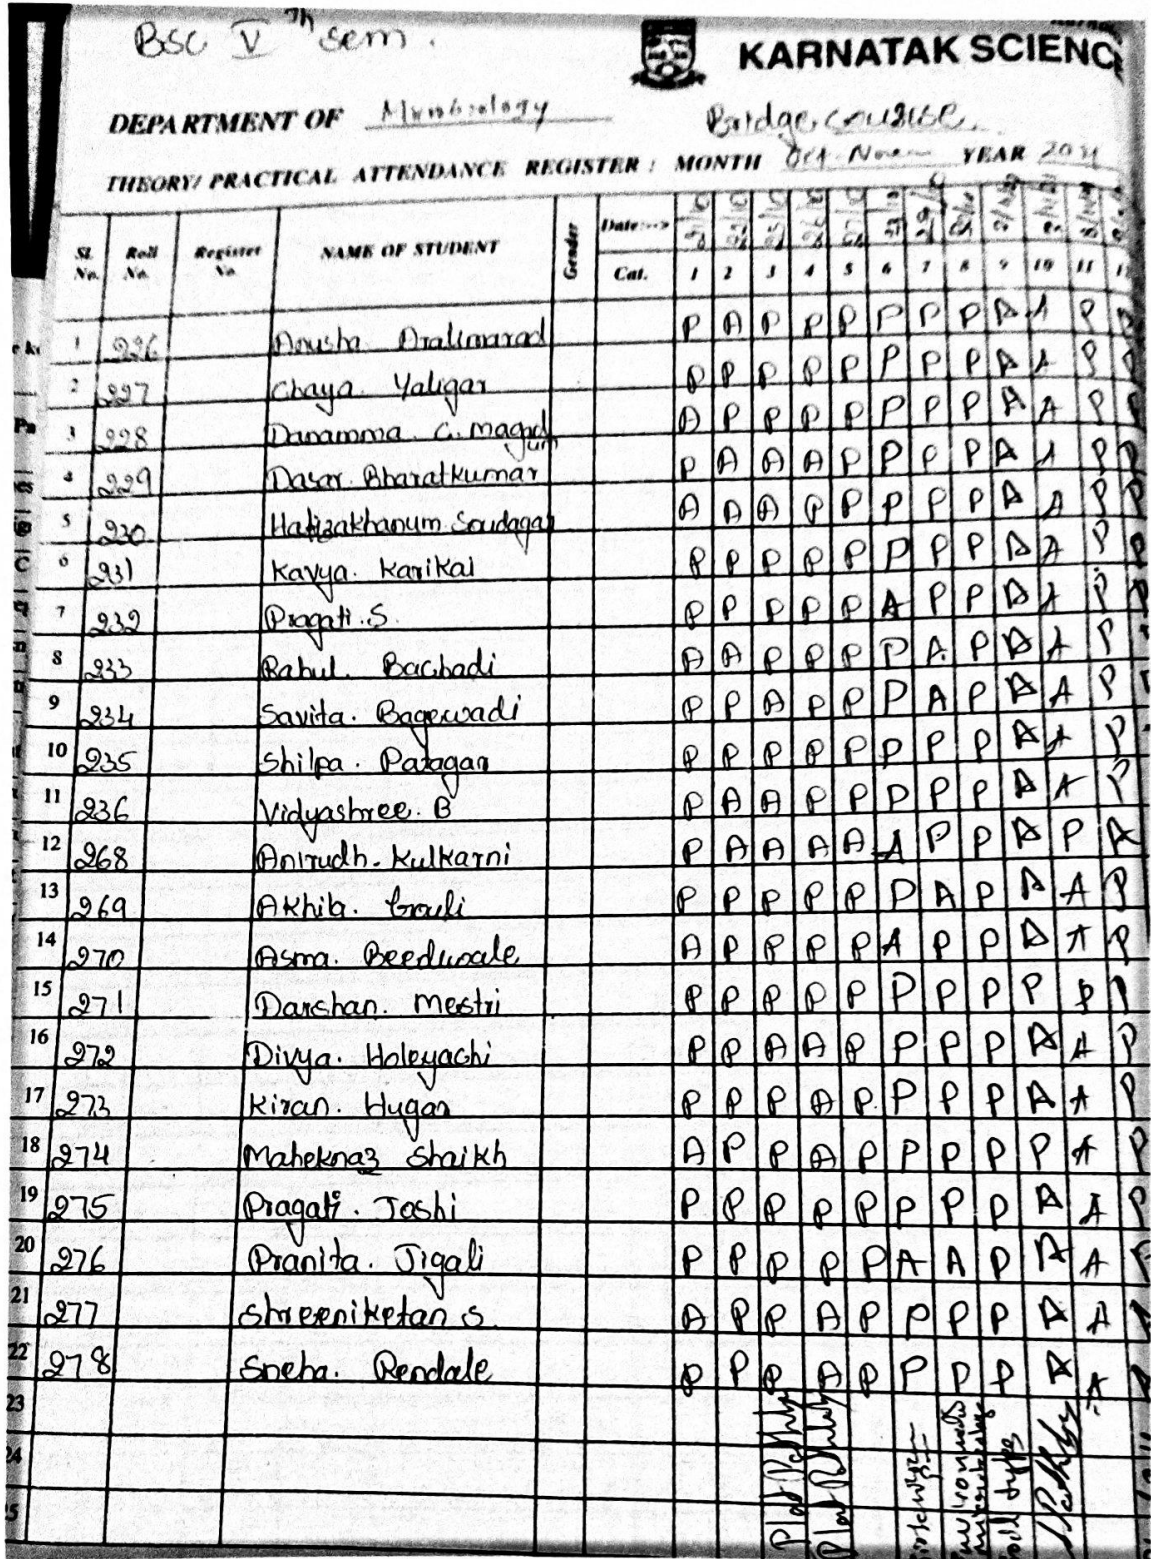 BSC V th sem.
KARNATAK SCIENC
DEPARTMENT OF Microbiology
Bridge course
THEORY/ PRACTICAL ATTENDANCE REGISTER : MONTH Oct-Nov YEAR 2021
Sl. No. Roll No. Register No. NAME OF STUDENT Gender Date:--> Cat. 1 2 3 4 5 6 7 8 9 10 11
1 226 Anusha Aralimarad P A P P P P P P A A P
2 227 Chaya. Yaligar P P P P P P P P A A P
3 228 Danamma. C. Magadum A P P P P P P P A A P
4 229 Dasar. Bharatkumar P A A A P P P P A A P
5 230 Hafizakhanum. Soudagar A A A P P P P P A A P
6 231 Kavya. Karikai P P P P P P P P A A P
7 232 Pragati. S. P P P P P A P P A A P
8 233 Rahul. Bachadi A A P P P P A P A A P
9 234 Savita. Bagewadi P P A P P P A P A A P
10 235 Shilpa. Patagar P P P P P P P P A A P
11 236 Vidyashree. B P A A P P P P P A A P
12 268 Anirudh. Kulkarni P A A A A A P P A P A
13 269 Akhila. Gouli P P P P P P A P A A P
14 270 Asma. Beeduwale A P P P P A P P A A P
15 271 Darshan. Mestri P P P P P P P P P P P
16 272 Divya. Holeyachi P P A A P P P P A A P
17 273 Kiran. Hugar P P P A P P P P A A P
18 274 Maheknaz Shaikh A P P A P P P P P A P
19 275 Pragati. Joshi P P P P P P P P A A P
20 276 Pranita. Jigali P P P P P A A P A A P
21 277 Shreeniketan S. A P P A P P P P A A
22 278 Sneha. Rendale P P P A P P P P A A
23
24